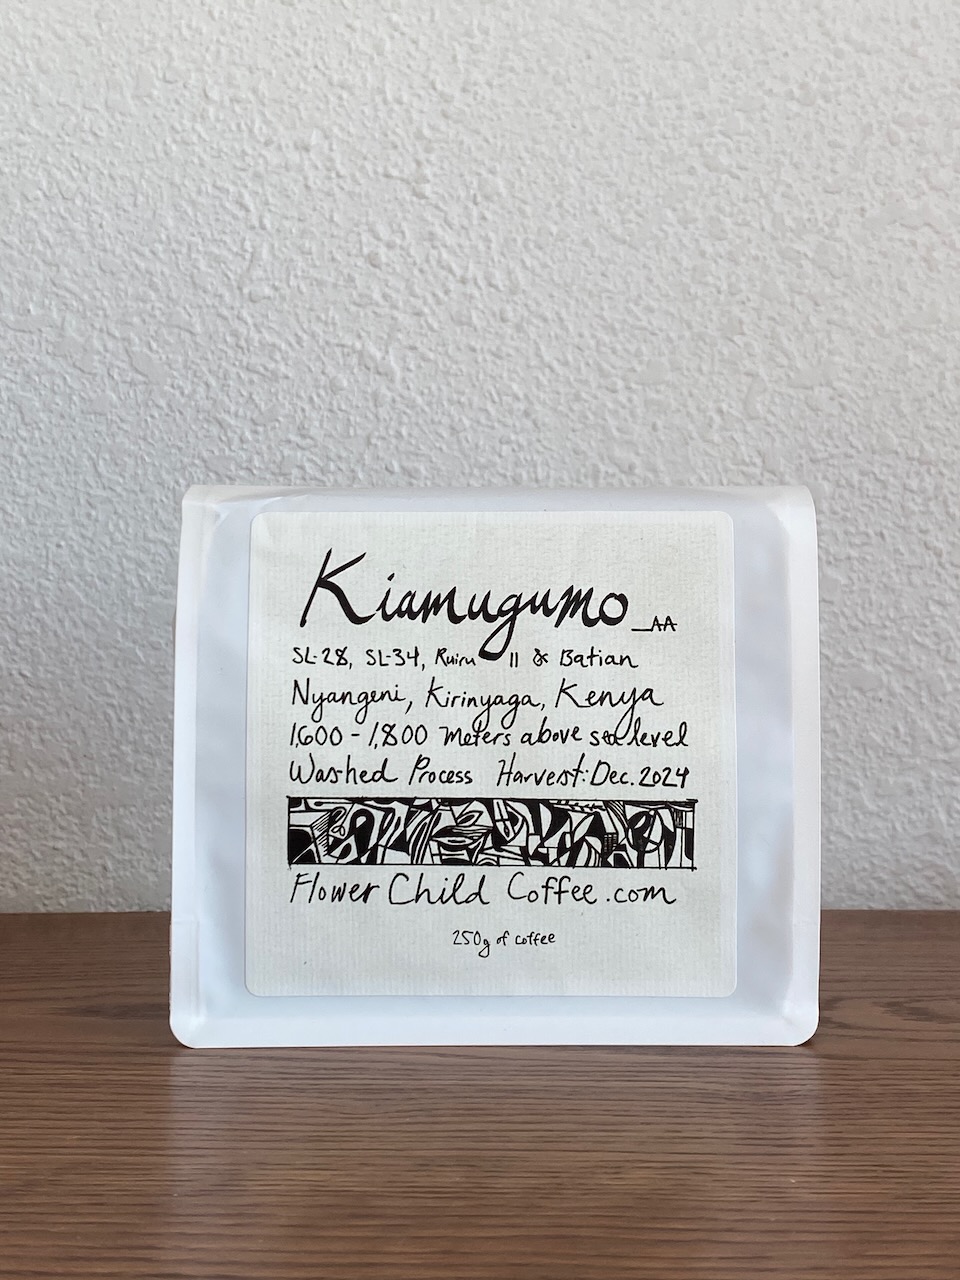 Kiamugumo_AA
SL-28, SL-34, Ruiru 11 & Batian
Nyangeni, Kirinyaga, Kenya
1,600 - 1,800 meters above sea level
Washed Process Harvest: Dec. 2024
Flower Child Coffee.com
250g of coffee